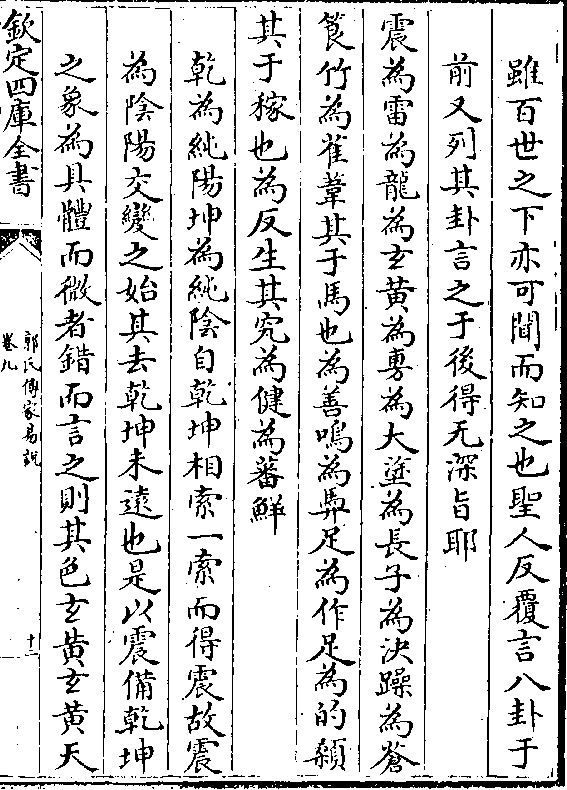 雖百世之下亦可聞而知之也聖人反覆言八卦于
前又列其卦言之于後得无深旨耶
震為雷為龍為玄黃為旉為大塗為長子為決躁為蒼
筤竹為萑葦其于馬也為善鳴為馵足為作足為的顙
其于稼也為反生其究為健為蕃鮮
乾為純陽坤為純陰自乾坤相索一索而得震故震
為陰陽交變之始其去乾坤未遠也是以震備乾坤
之象為具體而微者錯而言之則其色玄黃玄黃天
欽定四庫全書
郭氏傳家易說
卷九
十二